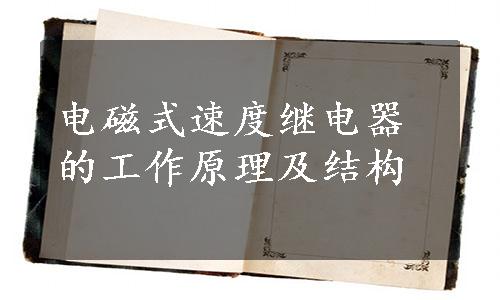 电磁式速度继电器
的工作原理及结构